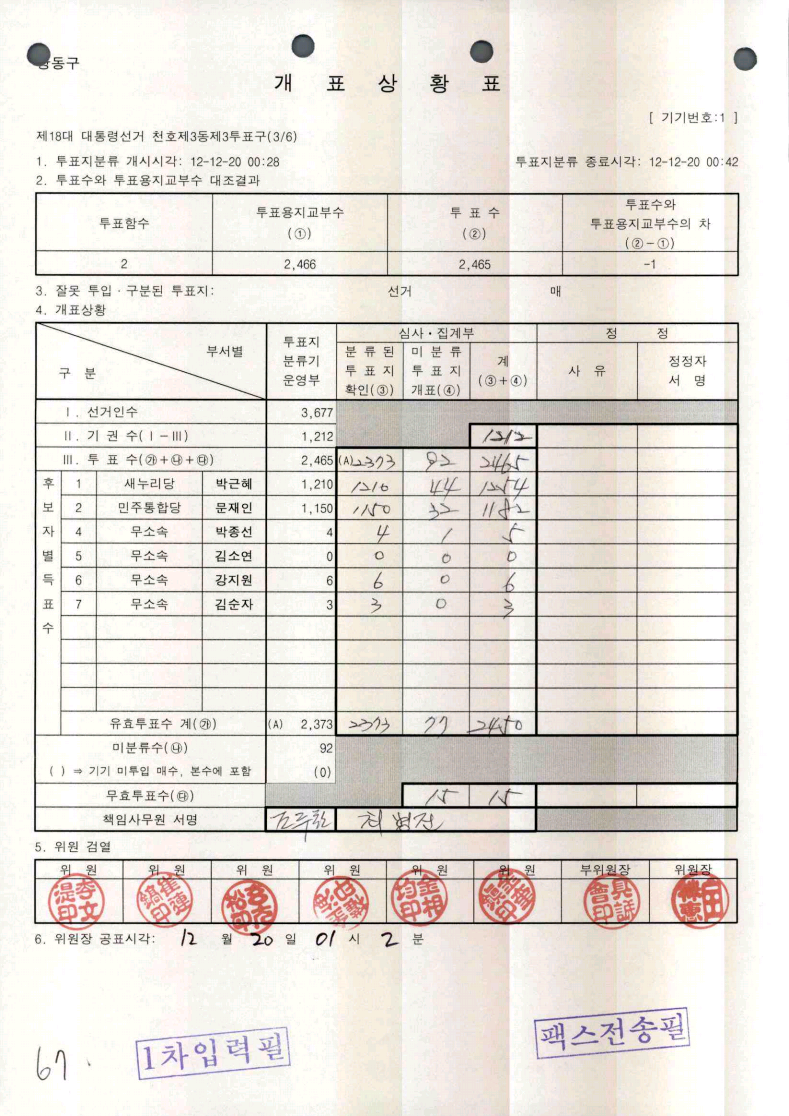 강동구
개 표 상 황 표
[ 기기번호:1 ]
제18대 대통령선거 천호제3동제3투표구(3/6)
1. 투표지분류 개시시각: 12-12-20 00:28 투표지분류 종료시각: 12-12-20 00:42
2. 투표수와 투표용지교부수 대조결과
투표함수 투표용지교부수 (①) 투 표 수 (②) 투표수와 투표용지교부수의 차 (②-①)
2 2,466 2,465 -1
3. 잘못 투입·구분된 투표지: 선거 매
4. 개표상황
구 분 부서별 투표지 분류기 운영부 심사·집계부 정 정
분 류 된 투 표 지 확인(③) 미 분 류 투 표 지 개표(④) 계 (③+④) 사 유 정정자 서 명
Ⅰ. 선거인수 3,677
Ⅱ. 기 권 수(Ⅰ-Ⅲ) 1,212 1212
Ⅲ. 투 표 수(㉮+㉯+㉰) 2,465 (A)2373 92 2465
후보자별득표수
1 새누리당 박근혜 1,210 1210 44 1254
2 민주통합당 문재인 1,150 1150 32 1182
4 무소속 박종선 4 4 1 5
5 무소속 김소연 0 0 0 0
6 무소속 강지원 6 6 0 6
7 무소속 김순자 3 3 0 3
유효투표수 계(㉮) (A) 2,373 2373 77 2450
미분류수(㉯) 92
( ) ⇒ 기기 미투입 매수, 본수에 포함 (0)
무효투표수(㉰) 15 15
책임사무원 서명
5. 위원 검열
위 원 위 원 위 원 위 원 위 원 위 원 부위원장 위원장
6. 위원장 공표시각: 12 월 20 일 01 시 2 분
67.
1차입력필
팩스전송필